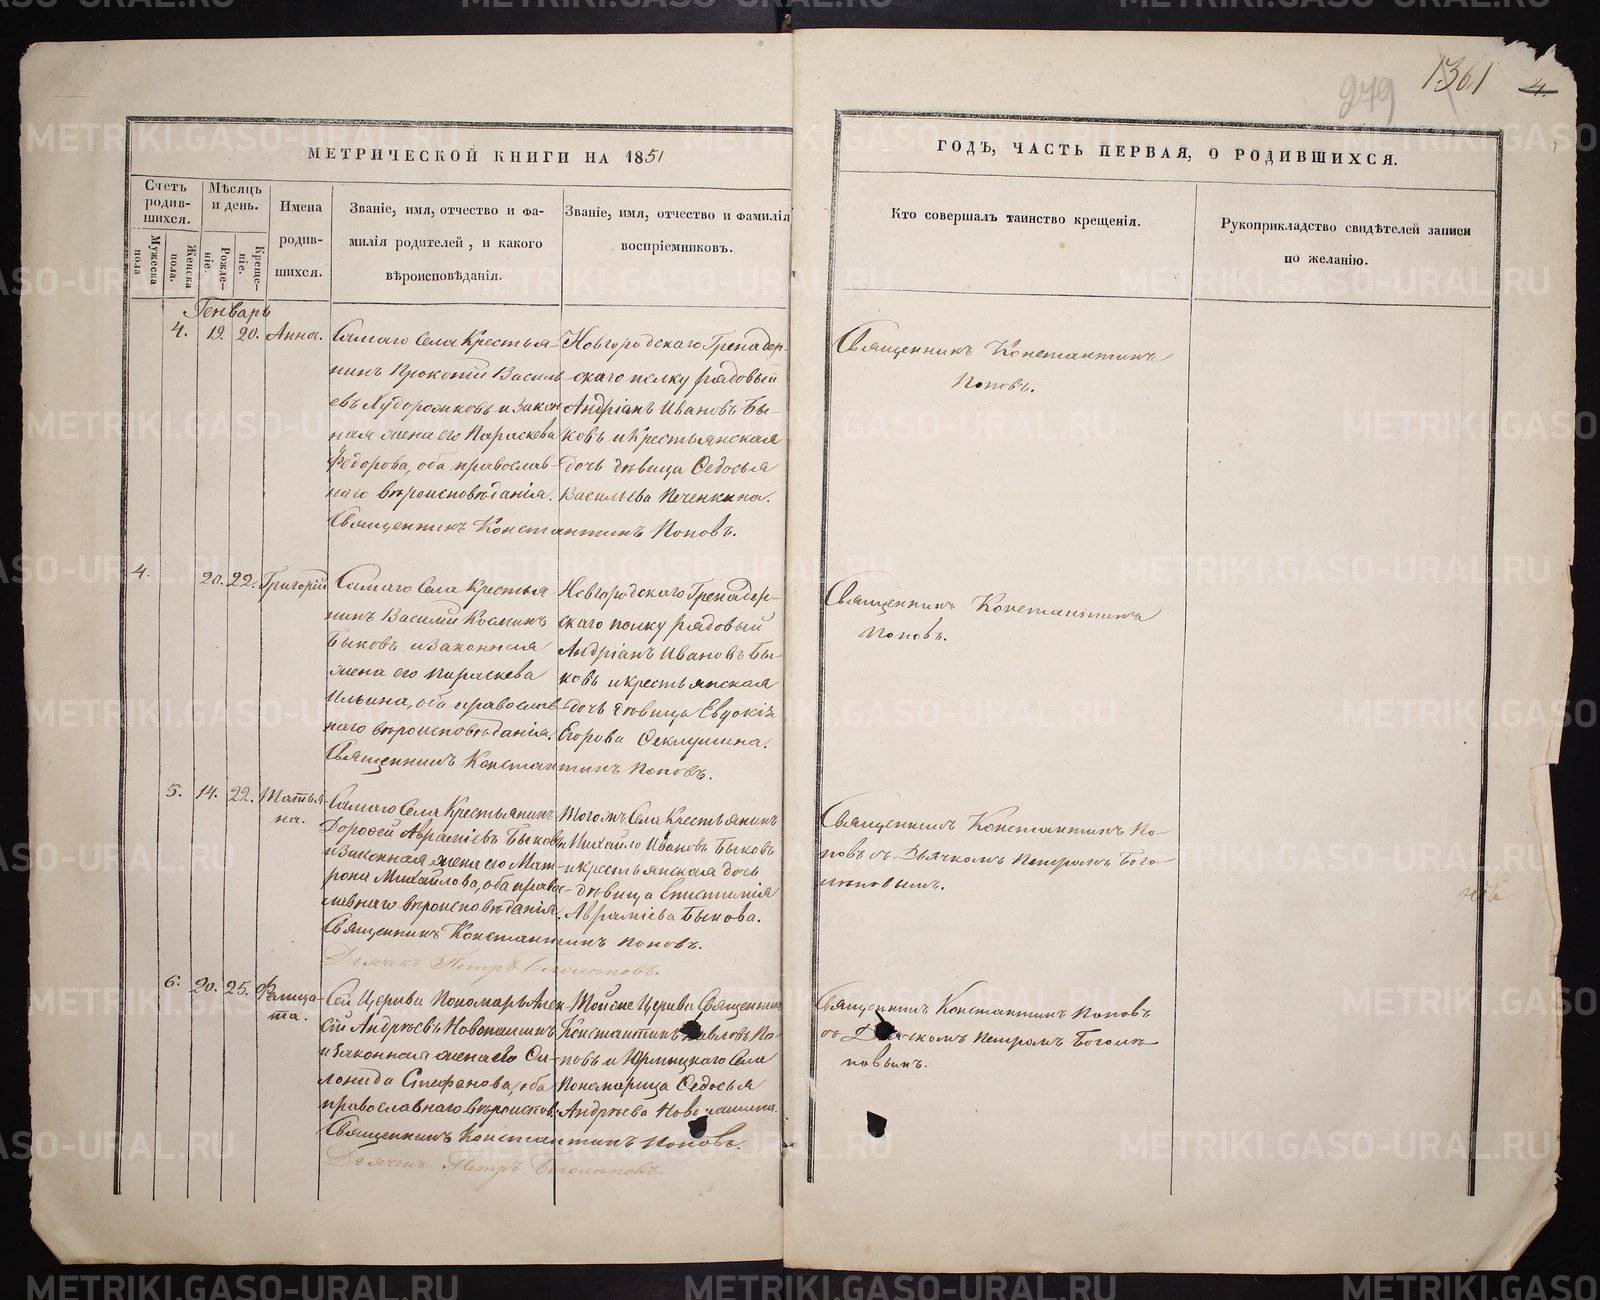 1361
279
4.
МЕТРИЧЕСКОЙ КНИГИ НА 1851
ГОДЪ, ЧАСТЬ ПЕРВАЯ, О РОДИВШИХСЯ.
Счетъ родив-шихся.
Мужеска пола
Женска пола.
Мѣсяцъ и день.
Рожде-ніе.
Креще-ніе.
Имена
родив-
шихся.
Званіе, имя, отчество и фа-
милія родителей, и какого
вѣроисповѣданія.
Званіе, имя, отчество и фамилія
воспріемниковъ.
Кто совершалъ таинство крещенія.
Рукоприкладство свидѣтелей записи
по желанію.
Генварь
4. 19. 20. Анна.
Самаго Села Крестья-
нинъ Прокопій Василь
евъ Худорожковъ и закон
ная жена его Параскева
Федорова, оба православ-
наго вѣроисповѣданія.
Священникъ Константинъ Поповъ.
Новгородскаго Гренадер-
скаго полку рядовый
Андріанъ Ивановъ Бы-
ковъ и Крестьянская
дочь дѣвица Федосья
Васильева Печенкина.
Священникъ Константинъ
Поповъ.
4. 20. 22. Григорій
Самаго Села Крестья-
нинъ Василій Косминъ
Быковъ и законная
жена его Параскева
Ильина, оба православ
наго вѣроисповѣданія.
Священникъ Константинъ Поповъ.
Новгородскаго Гренадер-
скаго полку рядовый
Андріанъ Ивановъ Бы-
ковъ и крестьянская
дочь дѣвица Евдокія
Егорова Феклушина.
Священникъ Константинъ
Поповъ.
5. 14. 22. Татья-
на.
Самаго Села Крестьянинъ
Дорофей Авраміевъ Быковъ
и законная жена его Мат-
рона Михайлова, оба право-
славнаго вѣроисповѣданія.
Священникъ Константинъ Поповъ.
Дьячекъ Петръ Боголюповъ.
Тогожъ Села Крестьянинъ
Михайло Ивановъ Быковъ
и крестьянская дочь
дѣвица Епистимія
Авраміева Быкова.
Священникъ Константинъ По-
повъ съ Дьячкомъ Петромъ Бого-
люповымъ.
6. 20. 25. Фелица-
та.
Сей Церкви Пономарь Алек
сій Андреевъ Новопашинъ
и законная жена его Со-
лонида Стефанова, оба
православнаго вѣроиспов.
Священникъ Константинъ Поповъ.
Дьячекъ Петръ Боголюповъ.
Той же Церкви Священникъ
Константинъ Павловъ По-
повъ и Юрмыцкаго Села
Пономарица Федосья
Андреева Новопашина.
Священникъ Константинъ Поповъ
съ Дьячкомъ Петромъ Боголю-
повымъ.
METRIKI.GASO-URAL.RU